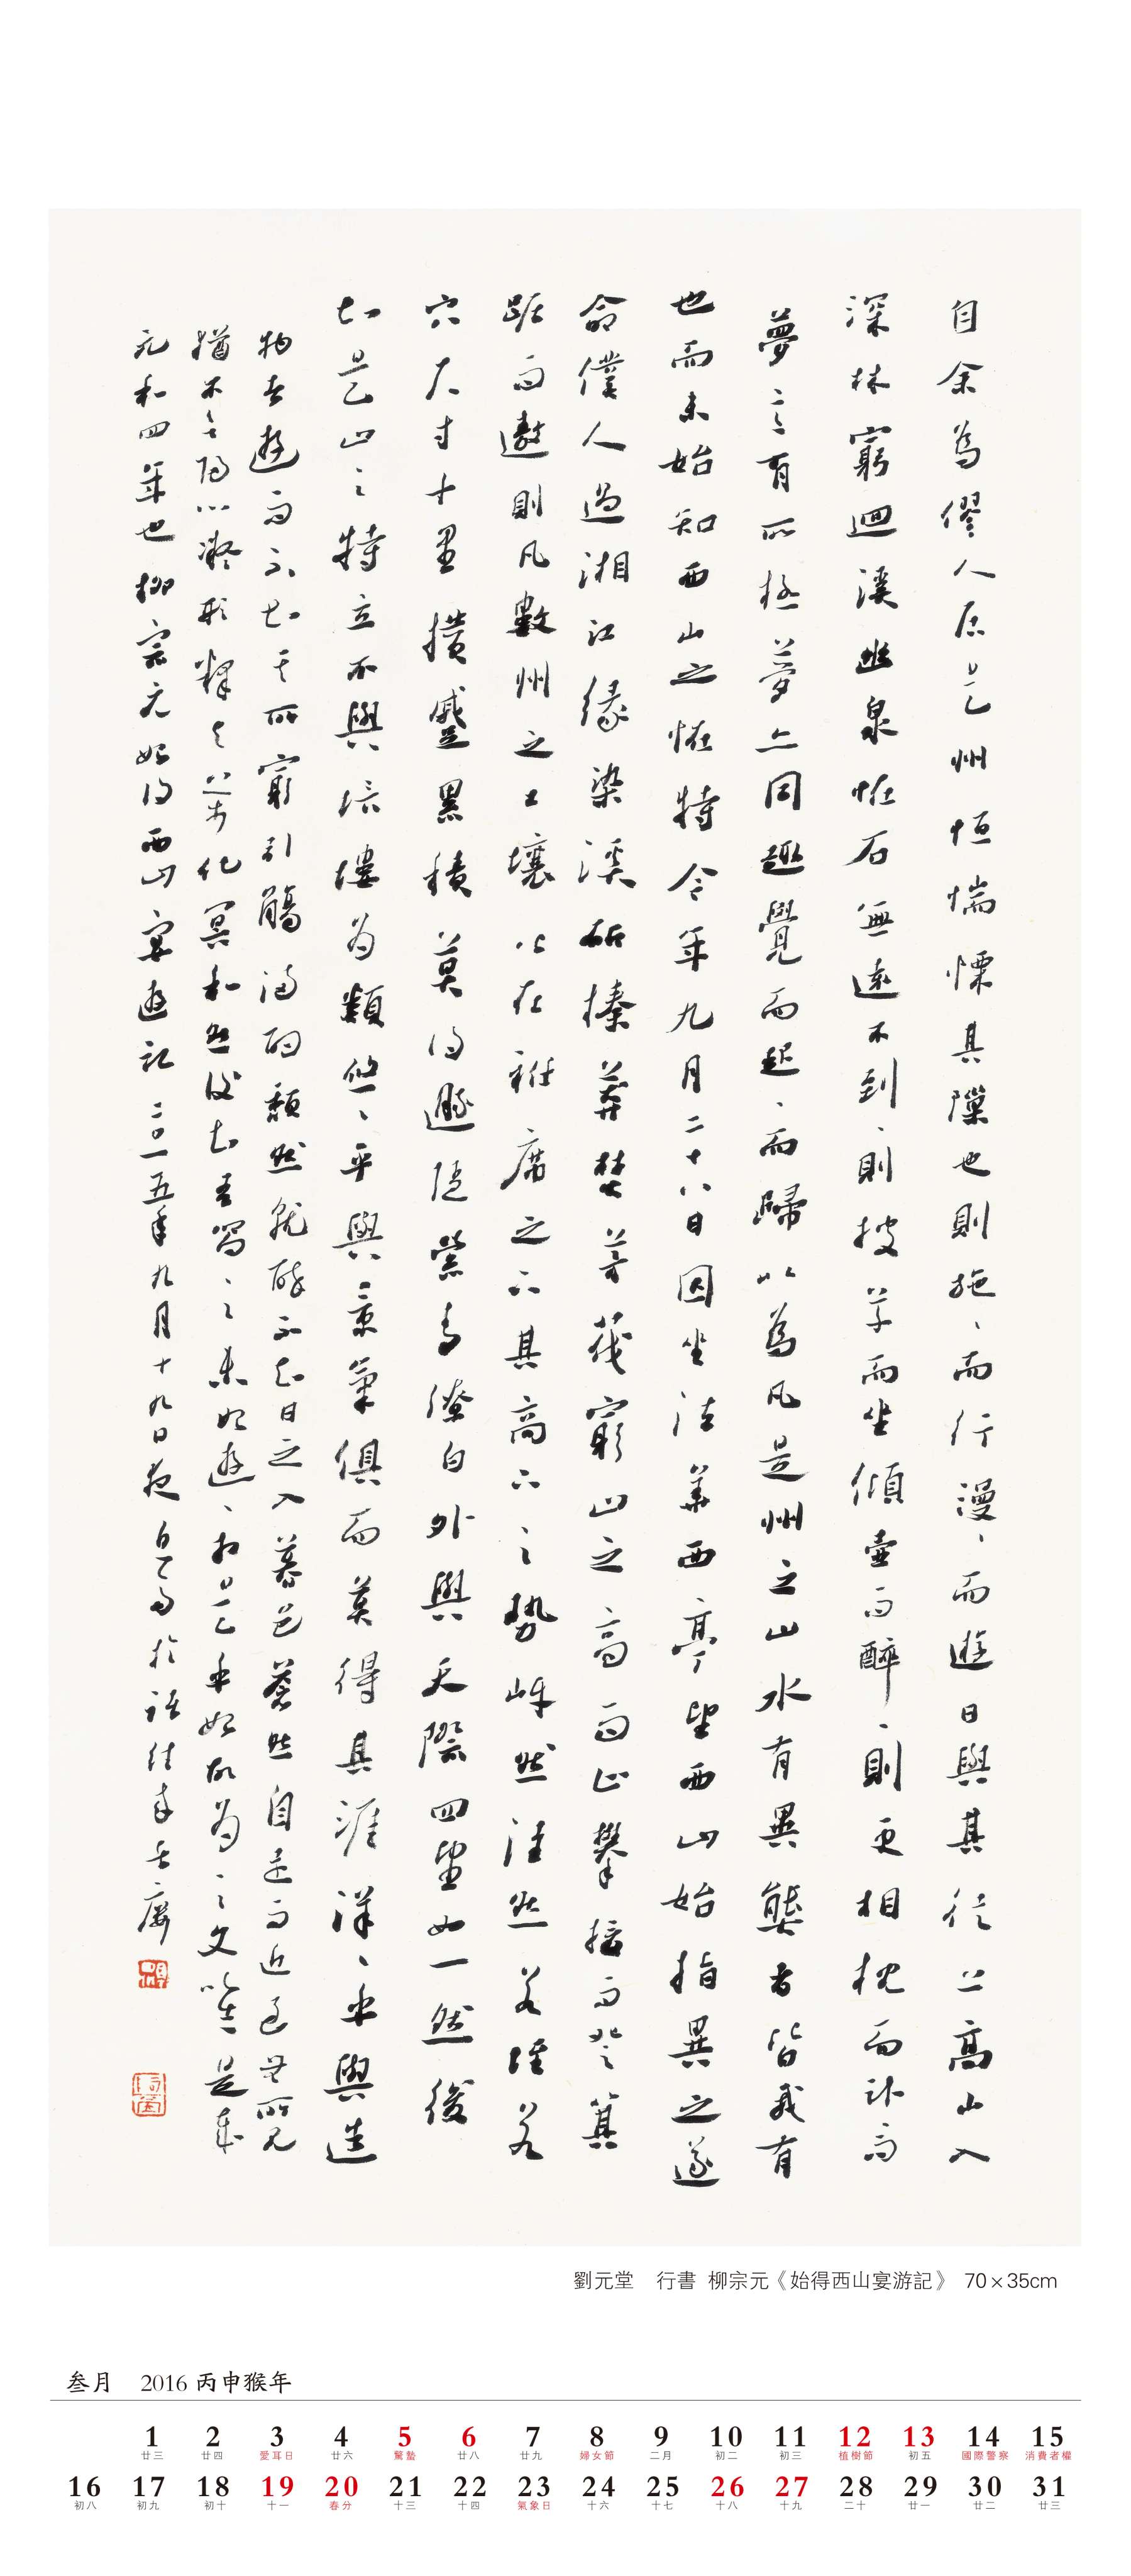 自余為僇人居是州恒惴慄其隟也則施、而行漫、而遊日與其徒上高山入
深林窮迴溪幽泉恠石無遠不到、則披草而坐傾壺而醉、則更相枕而臥而
夢意有所極夢亦同趣覺而起、而歸以為凡是州之山水有異態者皆我有
也而未始知西山之恠特今年九月二十八日因坐法華西亭望西山始指異之遂
命僕人過湘江緣染溪斫榛莽焚茅茷窮山之高而止攀援而登箕
踞而遨則凡數州之土壤皆在衽席之下其高下之勢岈然洼然若垤若
穴尺寸千里攢蹙累積莫得遯隱縈青繚白外與天際四望如一然後
知是山之特立不與培塿為類悠、乎與景氣俱而莫得其涯洋、乎與造
物者遊而不知其所窮引觴滿酌頹然就醉不知日之入暮色蒼然自遠而近至無所見
猶不欲歸心凝形釋與萬化冥和然後知吾嚮、之未始遊、於是乎始故為、之文以誌是歲
元和四年也柳宗元始得西山宴遊記二〇一五年九月十九日夜
劉元堂 行書 柳宗元《始得西山宴游記》 70×35cm
叁月 2016 丙申猴年
1 2 3 4 5 6 7 8 9 10 11 12 13 14 15
廿三 廿四 愛耳日 廿六 驚蟄 廿八 廿九 婦女節 二月 初二 初三 植樹節 初五 國際警察 消費者權
16 17 18 19 20 21 22 23 24 25 26 27 28 29 30 31
初八 初九 初十 十一 春分 十三 十四 氣象日 十六 十七 十八 十九 二十 廿一 廿二 廿三